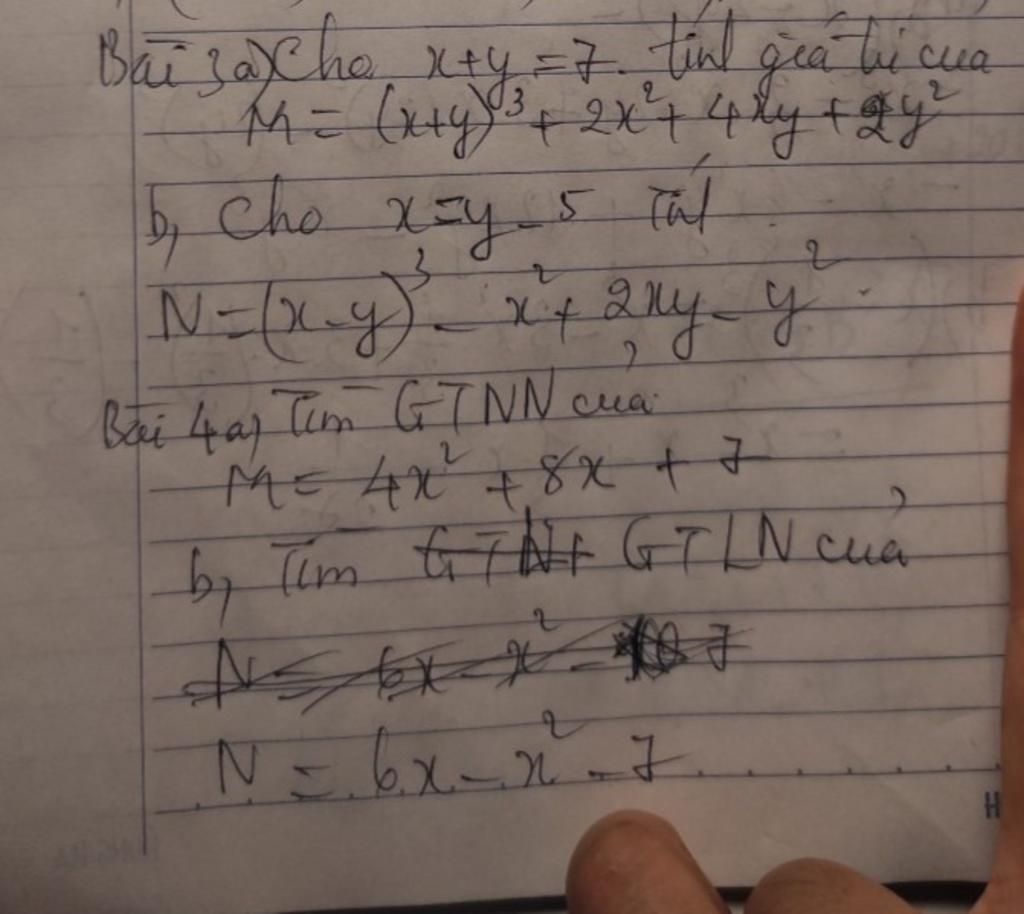 Bài 3a) Cho x+y = 7. tính giá trị của
M = (x+y)³ + 2x² + 4xy + 2y²
b, Cho x = y - 5 Tính
N = (x - y)³ - x² + 2xy - y²
Bài 4a) Tìm GTNN của
M = 4x² + 8x + 7
b, Tìm GTLN của
N = 6x - x² - 7
N = 6x - x² - 7